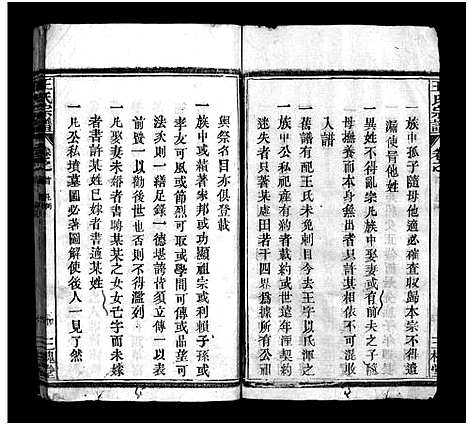 一族中孤子隨母他適必確查收歸本宗不得遺
漏使冒他姓
一異姓不得亂宗凡族中娶妻或有前夫之子隨
母撫養而本身無出者只許某後不可混收
入譜
一族中公私祀產有約者載約或世遠年湮契約
迷失者只著某處田若干四界爲據所有公祖
與祭名目亦俱登載
一族中或藉著宗邦或功顯祖宗或利賴子孫或
孝友可風或節烈可取或學問可傳或品望可
法或則一藉足錄一德堪誇皆須立傳一以表
前賢一以勸後世也否則不得濫列
一凡娶妻未婚者書聘某某之女女已字而未嫁
者書許某姓已嫁者書適某姓
一凡公私墳墓圖必著圖解使後人一見了然
王氏宗譜
三槐堂